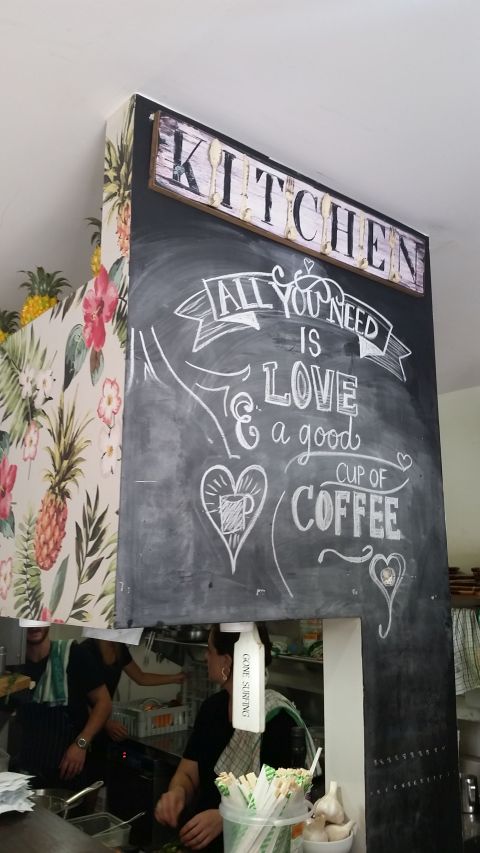 KITCHEN
ALL YOU NEED
IS
LOVE
& a good
CUP OF
COFFEE
GONE SURFING